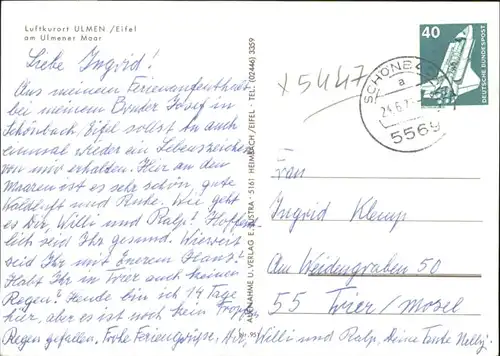 Luftkurort ULMEN /Eifel
am Ulmener Maar
Liebe Ingrid!
Aus meinem Ferienaufenthalt
bei meinem Bruder Josef in
Schönbach, Eifel sollst Du auch
einmal wieder ein Lebenszeichen
von mir erhalten. Hier an den
Maaren ist es sehr schön, gute
Waldluft und Ruhe. Wie geht
es Dir, Willi und Ralf? Hoffent-
lich seid Ihr gesund. Wieweit
seid Ihr mit Eurem Haus?
Habt Ihr in Trier auch keinen
Regen? Heute bin ich 14 Tage
hier, aber es ist noch kein Tropfen
Regen gefallen. Frohe Feriengrüße, Dir, Willi und Ralf, Deine Tante Nelly.
AUFNAHME U. VERLAG E. 5161 HEIMBACH/EIFEL · TEL. (02446) 3359
x 5447
40
DEUTSCHE BUNDESPOST
SCHÖNBACH
a
5569
Frau
Ingrid Klemp
Am Weidengraben 50
55 Trier/Mosel